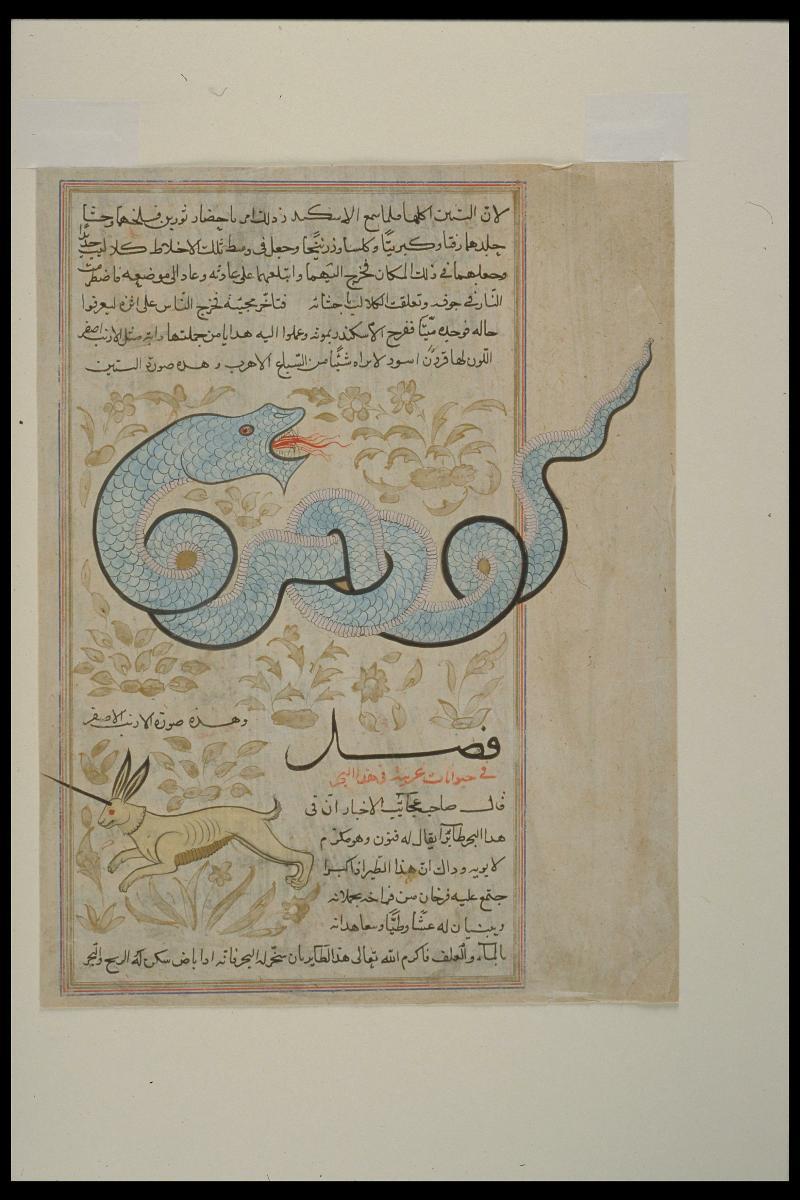 لان التنين اكلها فلما سمع الاسكندر ذلك امر باحضار ثورين فسلخهما وحشا
جلدهما زفتا وكبريتا وكلسا وزرنيخا وجعل في وسط تلك الاخلاط كلاليب حديدًا
وجعلهما في ذلك المكان فخرج التنين اليهما وابتلعهما على عادته وعاد الى موضعه فاضطرمت
النار في جوفه وتعلقت الكلاليب باحشائه فتاخر مجيئه فخرج الناس على اثره ليعرفوا
حاله فوجده ميتًا ففرح الاسكندر بموته وحملوا اليه هدايا من جملتها دابة مثل الارنب اصفر
اللون لها قرن اسود لا يراه شيئًا من السباع الا هرب و هذه صورة التنين
وهذه صورة الارنب الاصفر
فصل
في حيوانات غريبة في هذا البحر
قال صاحب عجايب الاخبار ان في
هذا البحر طايرًا يقال له فنون وهو مكرم
لابويه وذاك ان هذا الطير اذا كبرا
جتمع عليه فرخان من فراخه يحملانه
ويبنيان له عشًا وطيًا وتعاهدانه
بالماء والعلف فاكرم الله تعالى هذا الطاير بان سخر له البحر فانه اذا باض سكن له الريح والبحر